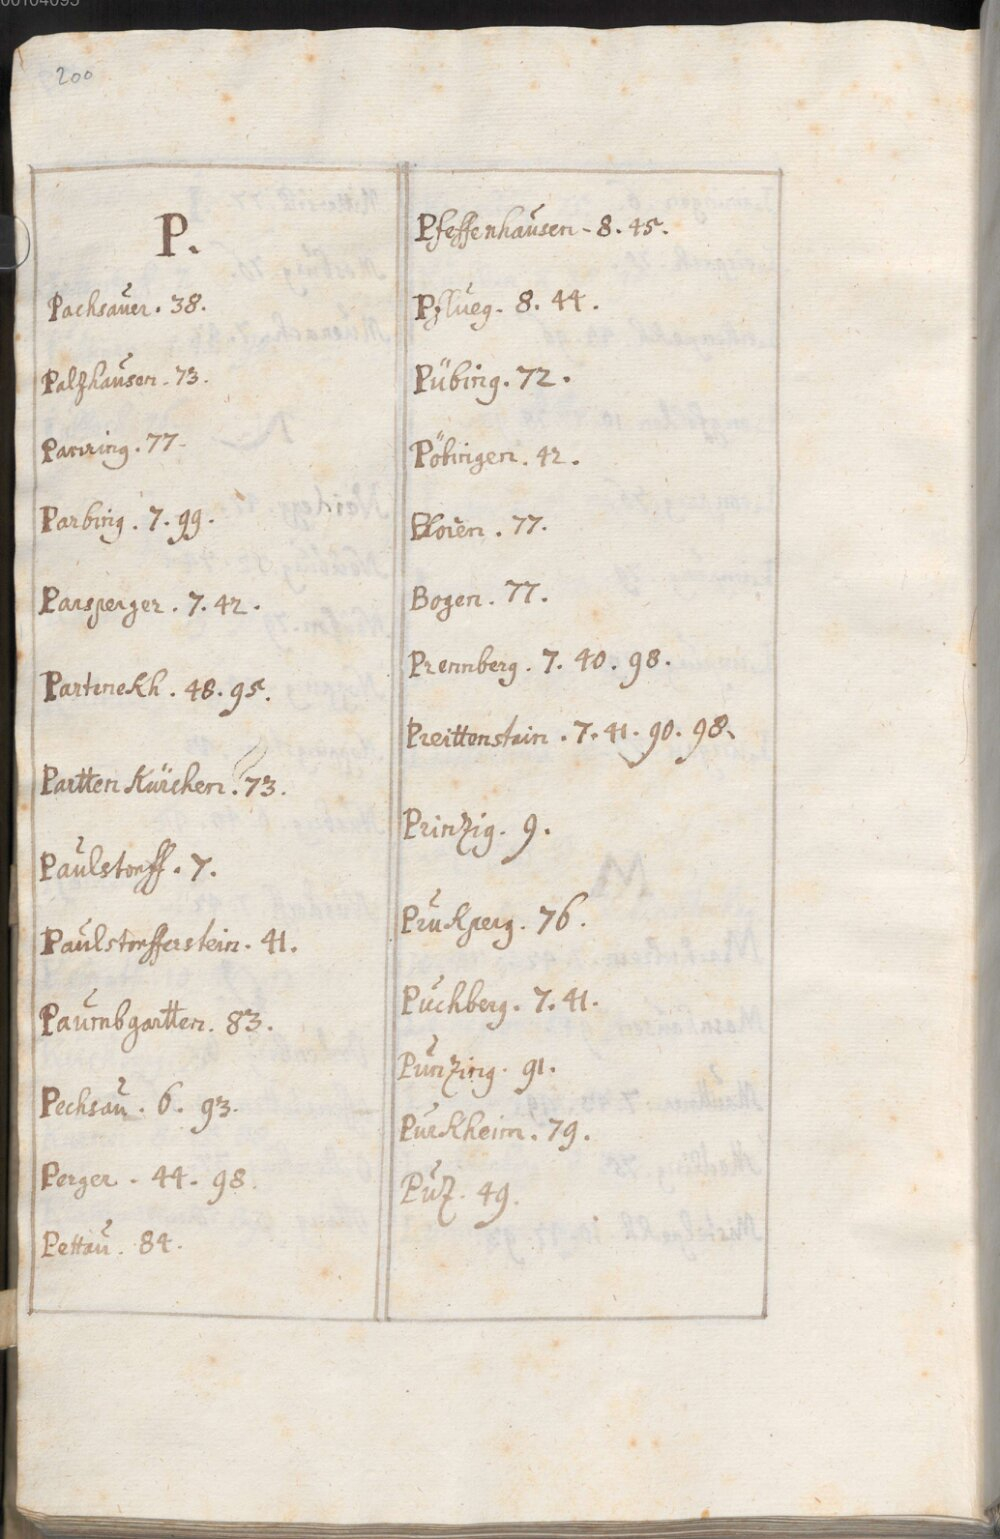 200
P.
Pachsaŭer. 38.
Palzhaŭsen. 73.
Panring. 77.
Parbing. 7. 99.
Parsperger. 7. 42.
Partenekh. 48. 95.
Parttenkürchen. 73.
Paŭlstorff. 7.
Paŭlstorfferstein. 41.
Paŭmbgartten. 83.
Pechsaŭ. 6. 93.
Perger. 44. 98.
Pettaŭ. 84.
Pfeffenhaŭsen. 8. 45.
Pflŭeg. 8. 44.
Pübing. 72.
Pöbingen. 42.
77.
Bogen. 77.
Prennberg. 7. 40. 98.
Preittenstein. 7. 41. 90. 98.
Prinzig. 9.
Prŭkperg. 76.
Pŭchberg. 7. 41.
Pŭnzing. 91.
Pŭrkheim. 79.
Pŭz. 49.